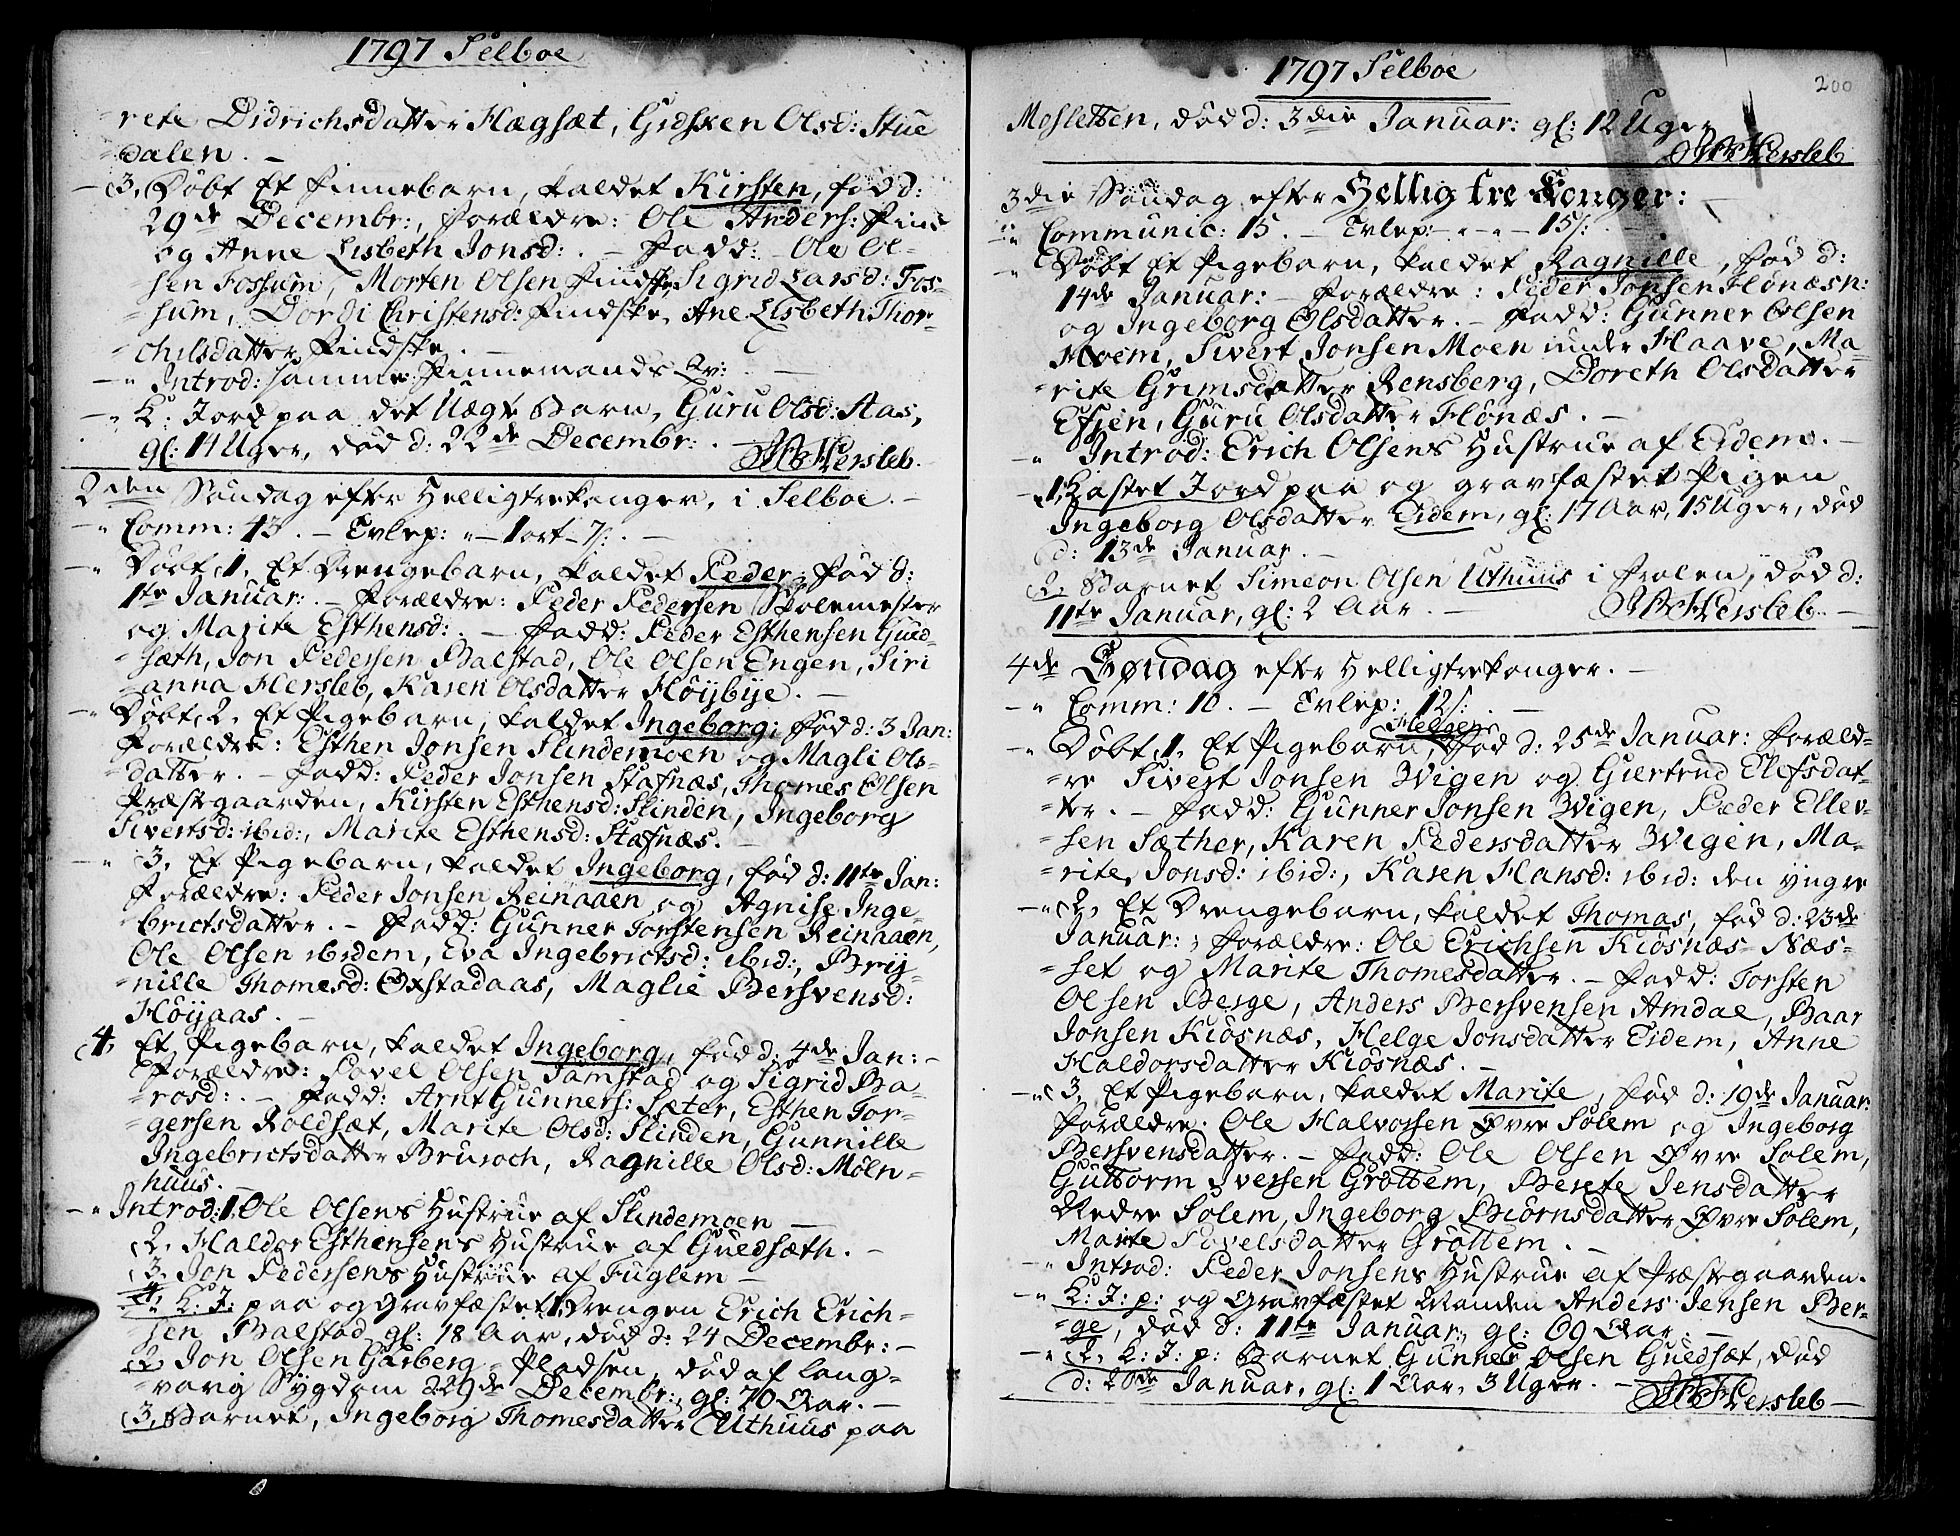 1797 Selboe
-rete Didrichsdatter Hægsæt, Gidsken Olsd: Stue
-dalen. -
-3, Døbt Et Finnebarn, kaldet Kirsten, fød d:
29de Decembr:, Forældre: Ole Anders: Fins
og Anne Lisbeth Jonsd: . - Fadd: Ole Ol-
-sen Fossum, Morten Olsen Findske, Sigrid Larsd: Fos-
-sum, Dordi Christensd: Findske, Ane Lisbeth Thor-
-chilsdatter Findske. -
-" Introd: samme Finnemands Qv: -
-" K: Jord paa det Uægte Barn, Guru Olsd: Aas,
gl: 14 Uger, død d: 22de Decembr: . - Hersleb.
2den Søndag efter Helligtrekonger, i Selboe. -
-" Comm: 43. - Evlep: " - 1 ort - 7/: . -
-" Døbt, 1, Et Drengebarn, kaldet Peder, fød d:
1te Januar: . - Forældre: Peder Pedersen Skolemester
og Marite Esthensd: . - Fadd: Peder Esthensen Gued-
-sæth, Jon Pedersen Balstad, Ole Olsen Engen, Siri
-anna Hersleb, Karen Olsdatter Høÿbÿe. -
-" Døbt, 2, Et Pigebarn, kaldet Ingeborg, fød d: 3 Jan:
Forældre: Esthen Jonsen Slindemoen og Magli Ols-
-datter. - Fadd: Peder Jonsen Stafnæs, Thomes Olsen
Præstegaarden, Kirsten Esthensd: Slinden, Ingeborg
Sivertsd: ibid:, Marite Esthensd: Stafnæs. -
-" 3, Et Pigebarn, kaldet Ingeborg, fød d: 11te Jan:
Forældre: Peder Jonsen Reinaaen og Agnise Inge-
-brictsdatter. - Fadd: Gunner Torstensen Reinaaen,
Ole Olsen ibidem, Eva Ingebrictsd: ibid:, Brÿ-
-nille Thomesd: Oxstadaas, Maglie Bersvensd:
Høÿaas. -
4, Et Pigebarn, kaldet Ingeborg, fød d: 4de Jan: -
Forældre: Povel Olsen Samstad og Sigrid Ba-
-rosd: . - Fadd: Arnt Gunners: Sæter, Esthen Tor-
-gersen Roldsæt, Marite Olsd: Slinden, Gunnille
Ingebrictsdatter Bruroch, Ragnille Olsd: Møln-
huus. -
-" Introd: 1, Ole Olsens Hustrue af Slindemoen -
2, Haldor Esthensens Hustrue af Guedsæth. -
3, Jon Pedersens Hustrue af Fuglem -
-" K: J: paa og Gravfæstet 1, Drengen Erich Erich-
-sen Balstad, gl: 18 Aar, død d: 24 Decembr: -
2, Jon Olsen Garberg-Pladsen, død af lang-
-varig Sÿgdom 29de Decembr:, gl: 70 Aar. -
3, Barnet, Ingeborg Thomesdatter Uthuus paa
1797 Selboe
200
Mosletten, død d: 3die Januar: gl: 12 Uger
Hersleb
3die Søndag efter Hellig tre Konger: -
-" Communic: 15. - Evlep: - " - 15/: . -
-" Døbt Et Pigebarn, kaldet Ragnille, fød d:
14de Januar: - Forældre: Peder Jonsen Flønæsn:
og Ingeborg Olsdatter. - Fadd: Gunner Olsen
Moem, Sivert Jonsen Moen under Haave, Ma-
-rite Grimsdatter Rensberg, Doreth Olsdatter
Efjen, Guru Olsdatter Flønæs. -
-" Introd: Erich Olsens Hustrue af Eidem. -
-1, Kastet Jord paa og gravfæstet Pigen
Ingeborg Olsdatter Eidem, gl: 17 Aar, 15 Uger, død
d: 13de Januar. -
2, Barnet Simeon Olsen Uthuus i Prolen, død d:
11te Januar, gl: 2 Aar. - Hersleb. -
4de Søndag efter Helligtrekonger. -
-" Comm: 10. - Evlep: 12/: . -
Helgen
-" Døbt, 1, Et Pigebarn, fød d: 25de Januar: Foræld-
-re Sivert Jonsen Zvigen og Giertrud Elefsdat-
-ter. - Fadd: Gunner Jonsen Zvigen, Peder Ellev-
sen Sæther, Karen Pedersdatter Zvigen, Ma-
-rite Jonsd: ibid:, Karen Hansd: ibid: den yngre
-" 2, Et Drengebarn, kaldet Thomas, fød d: 23de
Januar: ; Forældre: Ole Erichsen Kiøsnæs-Næs-
-set og Marite Thomesdatter. - Fadd: Torsten
Olsen Berge, Anders Bersvensen Amdal, Baar
Jonsen Kiøsnæs, Helge Jonsdatter Eidem, Anne
Haldorsdatter Kiøsnæs. -
-" 3, Et Pigebarn, kaldet Marite, fød d: 19de Januar:
Forældre: Ole Halvorsen Øvre Solem og Ingeborg
Bersvensdatter. - Fadd: Ole Olsen Øvre Solem,
Guttorm Iversen Grøttem, Berete Jensdatter
Nedre Solem, Ingeborg Biørnsdatter Øvre Solem,
Marite Povelsdatter Grøttem. -
-" Introd: Peder Jonsens Hustrue af Præstegaarden.
-" K: J: p: og Gravfæstet Manden Anders Jensen Ber-
-ge, død d: 11te Januar:, gl: 69 Aar. -
-" 2, K: J: p: Barnet Gunner Olsen Guedsæt, død
d: 20de Januar, gl: 1 Aar, 3 Uger. - Hersleb -